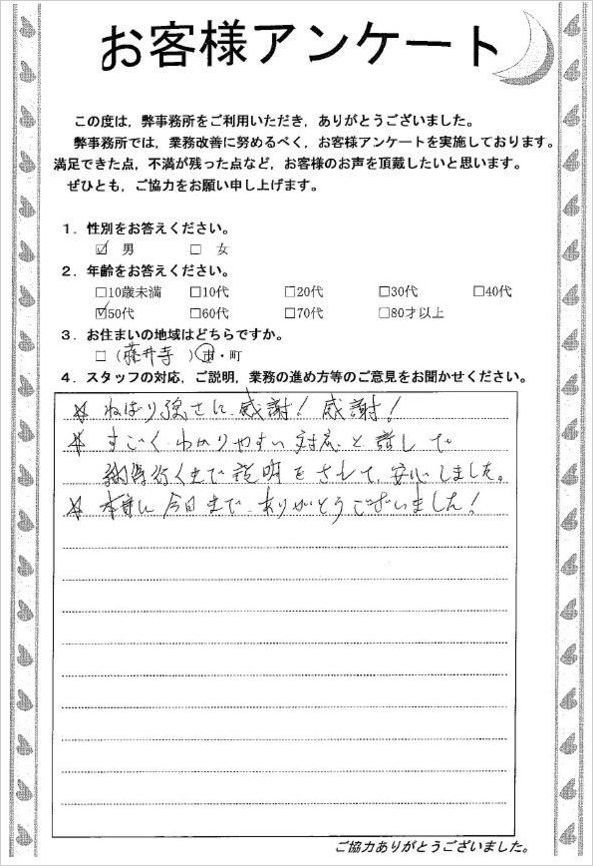 お客様アンケート
この度は，弊事務所をご利用いただき，ありがとうございました。
弊事務所では，業務改善に努めるべく，お客様アンケートを実施しております。
満足できた点，不満が残った点など，お客様のお声を頂戴したいと思います。
ぜひとも，ご協力をお願い申し上げます。
1．性別をお答えください。
☑ 男 □ 女
2．年齢をお答えください。
□10歳未満 □10代 □20代 □30代 □40代
☑50代 □60代 □70代 □80才以上
3．お住まいの地域はどちらですか。
□（藤井寺）市・町
4．スタッフの対応，ご説明，業務の進め方等のご意見をお聞かせください。
☆ ねばり強さに、感謝！感謝！
☆ すごく わかりやすい 対応と 話しで
納得行くまで 説明を されて、安心しました。
☆ 本当に 今日まで ありがとうございました！
ご協力ありがとうございました。